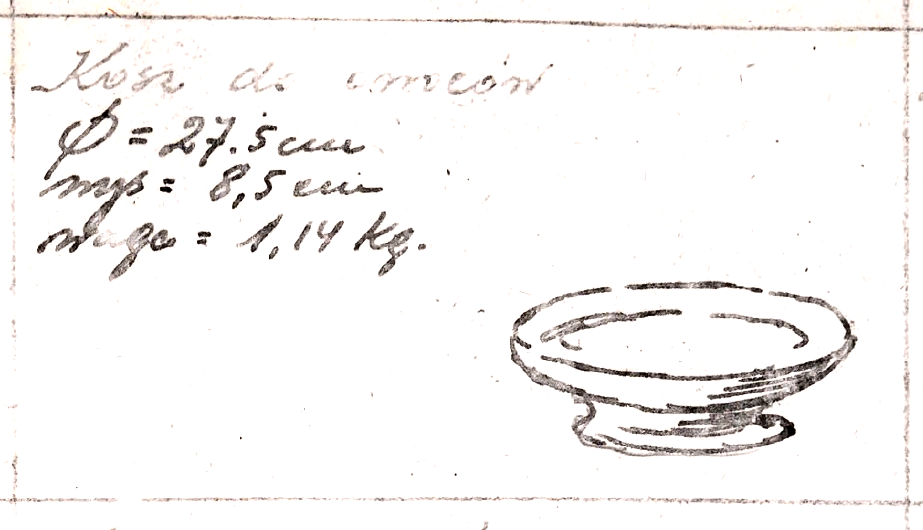 Kosz do owoców
Ø = 27.5 cm
wys = 8,5 cm
waga = 1,14 Kg.